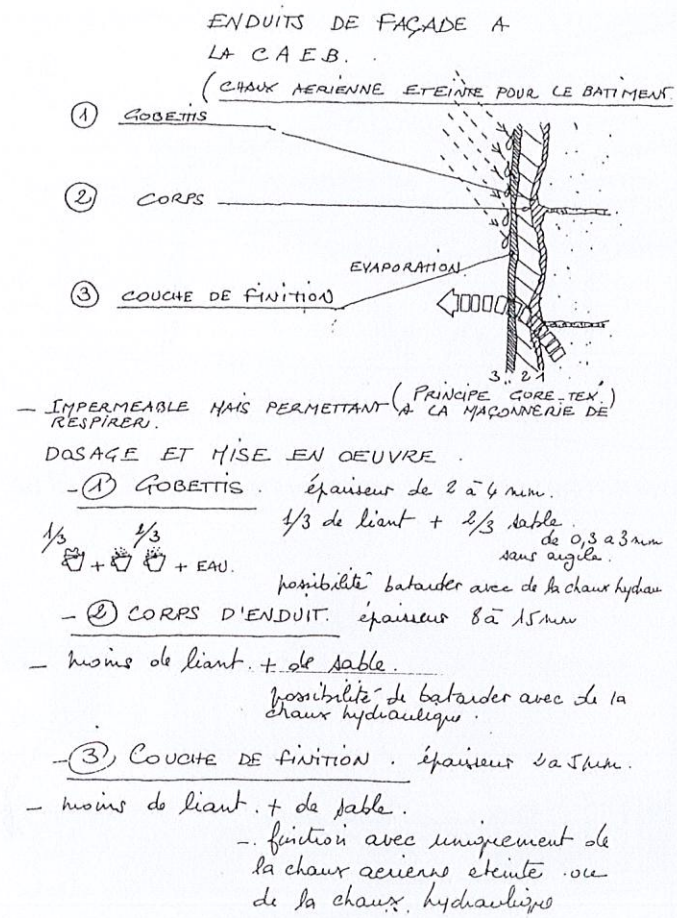 ENDUITS DE FAÇADE A
LA C A E B.
(CHAUX AERIENNE ETEINTE POUR LE BATIMENT
① GOBETTIS
② CORPS
EVAPORATION
③ COUCHE DE FINITION
3 2 1
(PRINCIPE GORE-TEX)
- IMPERMEABLE MAIS PERMETTANT A LA MAÇONNERIE DE
RESPIRER.
DOSAGE ET MISE EN OEUVRE.
- ① GOBETTIS. épaisseur de 2 à 4 mm.
1/3 de liant + 2/3 sable.
de 0,3 a 3 mm
sans argile.
1/3 2/3
+ + EAU.
possibilité batarder avec de la chaux hydrau
- ② CORPS D'ENDUIT. épaisseur 8 à 15 mm
- moins de liant. + de sable.
possibilité de batarder avec de la
chaux hydraulique.
- ③ COUCHE DE FINITION. épaisseur a 5 mm.
- moins de liant. + de sable.
- finition avec uniquement de
la chaux aerienne eteinte ou
de la chaux hydraulique